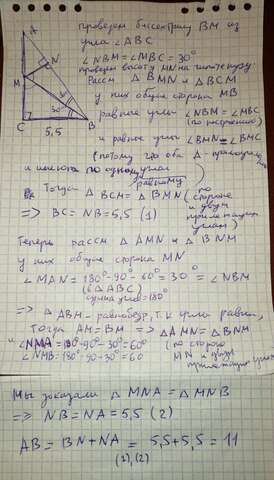 проведем биссектрису BM из
угла ∠ABC
∠NBM=∠MBC=30°
проведем высоту MN на гипотенузу.
Рассм △BMN и △BCM
у них общая сторона MB
равные углы ∠NBM=∠MBC
(по построению)
и равные углы ∠BMN=∠BMC
(потому что оба △-прямоуг.
и имеют по одному равному углу)
Тогда △BCM=△BMN (по
стороне
и двум
прилежащим
углам)
=> BC=NB=5,5 (1)
A
N
M
C
B
30°
5,5
Теперь рассм △AMN и △BNM
у них общая сторона MN
∠MAN=180°-90°-60°=30°=∠NBM
(в △ABC)
сумма углов=180°
=> △ABM-равнобедр, т.к углы равны,
Тогда AM=BM => △AMN=△BNM
∠NMA=180°-90°-30°=60° (по стороне
∠NMB=180°-90-30°=60 MN и двум
прилежащим углам)
Мы доказали △MNA=△MNB
=> NB=NA=5,5 (2)
AB=BN+NA = 5,5+5,5=11
(1),(2)